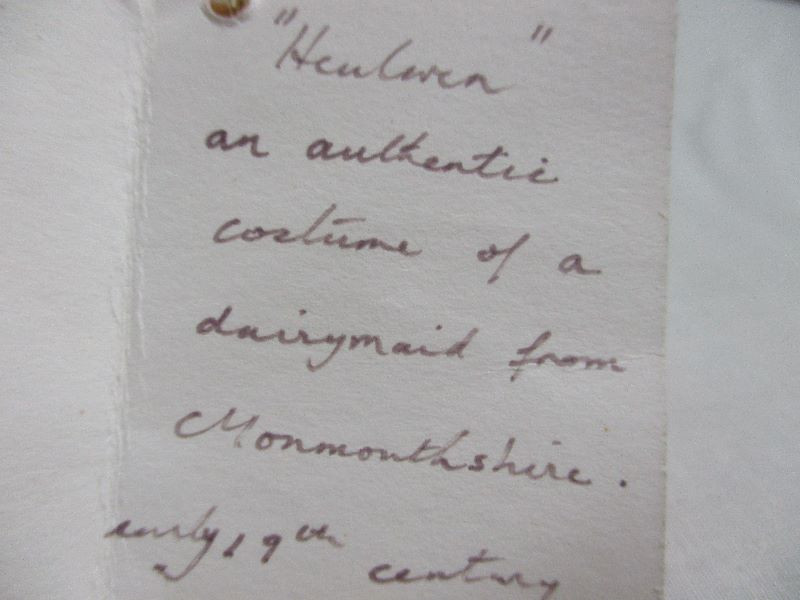 "Heulwen"
an authentic
costume of a
dairymaid from
Monmouthshire.
early 19th century